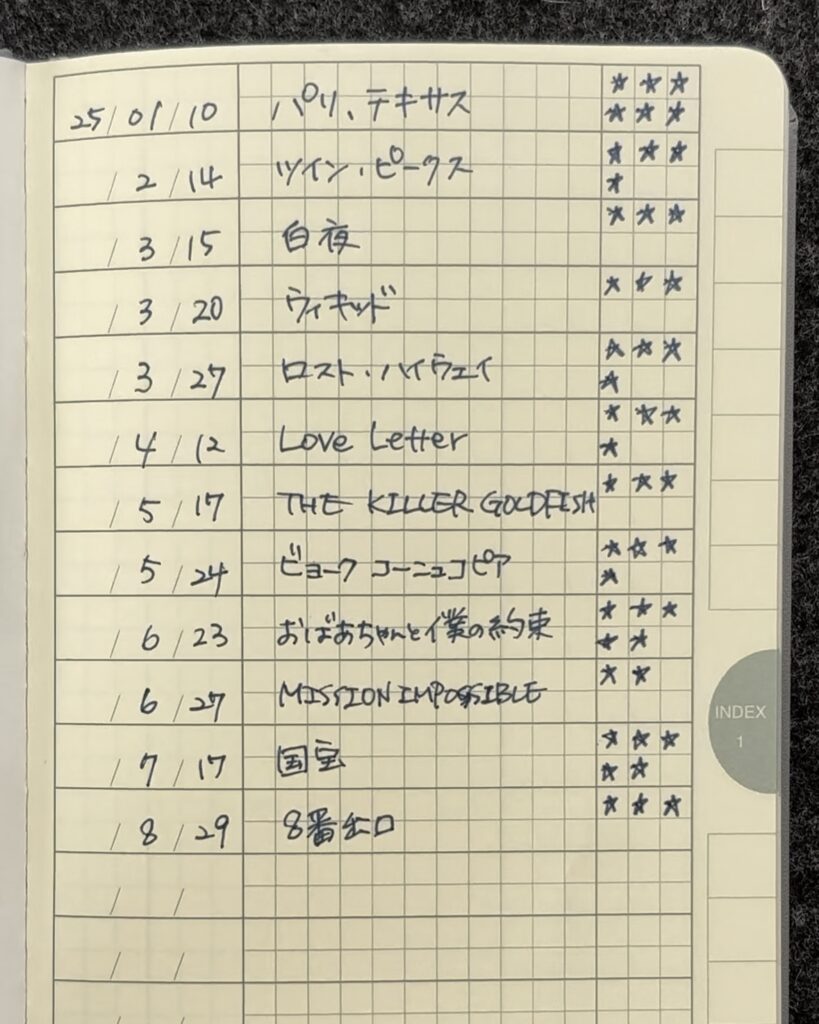 25/01/10 パリ、テキサス ★★★
★★★
/2/14 ツイン・ピークス ★★★
★
/3/15 白夜 ★★★
/3/20 ウィキッド ★★★
/3/27 ロスト・ハイウェイ ★★★
★
/4/12 Love Letter ★★★
★
/5/17 THE KILLER GOLDFISH ★★★
/5/24 ビョーク コーニュコピア ★★★
★
/6/23 おばあちゃんと僕の約束 ★★★
★★
/6/27 MISSION IMPOSSIBLE ★★
/7/17 国宝 ★★★
★★
/8/29 8番出口 ★★★
/ /
/ /
/ /
INDEX
1